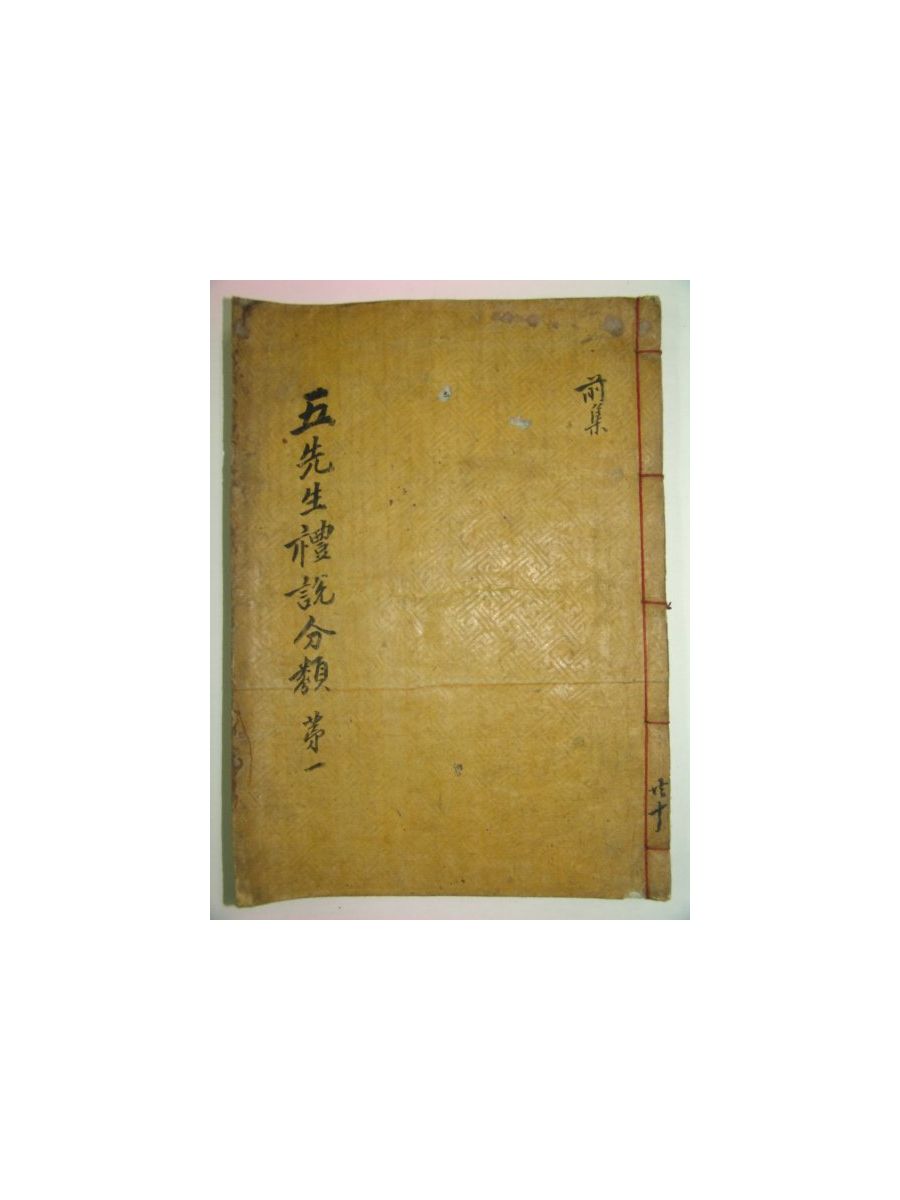 前集
五先生禮說分類 苐一
共十